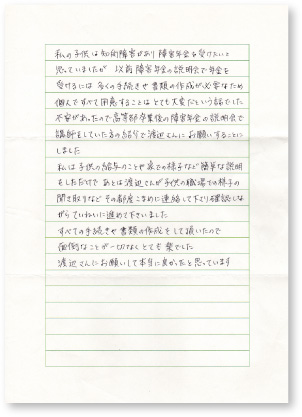 私の子供は知的障害があり障害年金を受けたいと
思っていましたが 以前障害年金の説明会で年金を
受けるには多くの手続きや書類の作成が必要なため
個人ですべて用意することはとても大変だという話でした
不安があったので高等部卒業後の障害年金の説明会で
講師をしていた方の紹介で渡辺さんにお願いすることに
しました
私は子供の給与のことや家での様子など簡単な説明
をしただけで あとは渡辺さんが子供の職場での様子の
聞き取りなど その都度こまめに連絡して下さり確認しな
がらていねいに進めて下さいました
すべての手続きや書類の作成をして頂いたので
面倒なことが一切なくとても楽でした
渡辺さんにお願いして本当に良かったと思っています